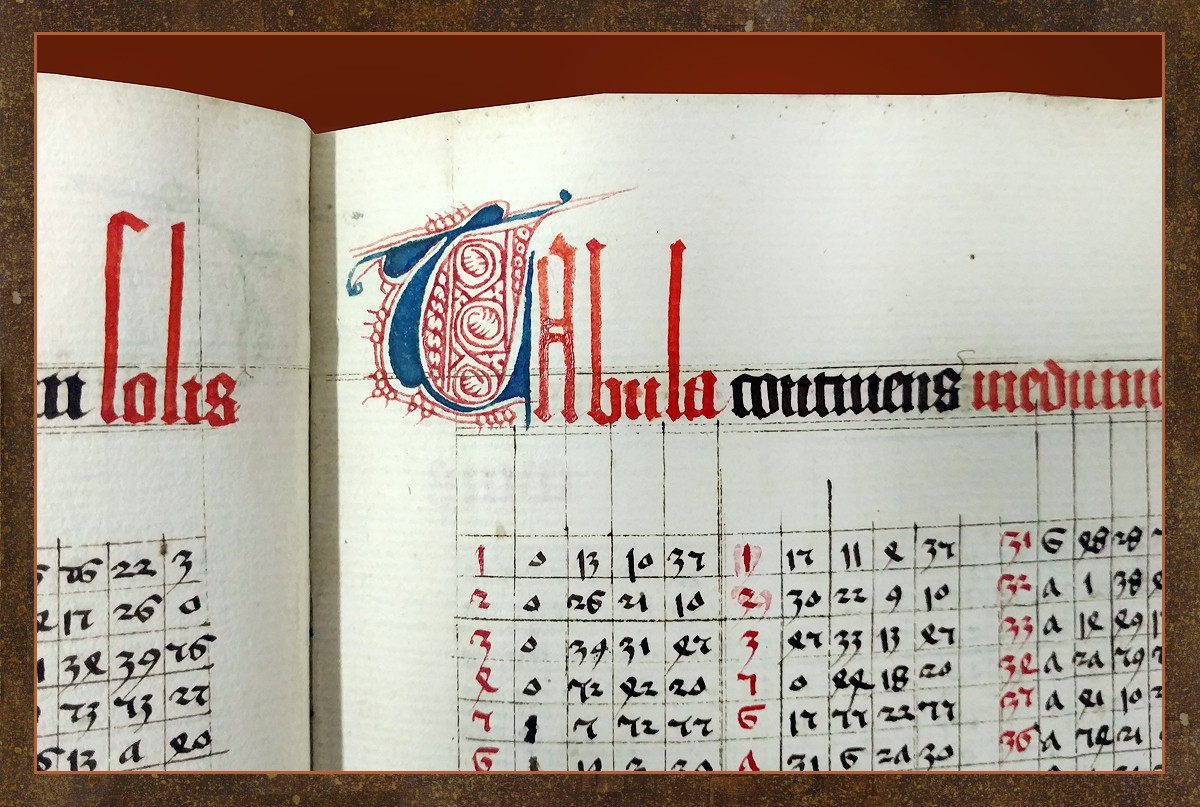 m Solis
Tabula continens medium
56 22 3
15 26 0
34 39 56
53 53 25
13 7 40
1 0 13 10 35 1 15 11 4 35 31 6 48 28
2 0 26 21 10 2 30 22 9 10 32 7 1 38
3 0 39 31 45 3 45 33 13 45 33 7 14 49
4 0 52 42 20 5 0 44 18 20 34 7 27 59
5 1 5 52 55 6 15 55 22 55 35 7 41 10
6 1 7 31 6 27 30 36 7 54 21